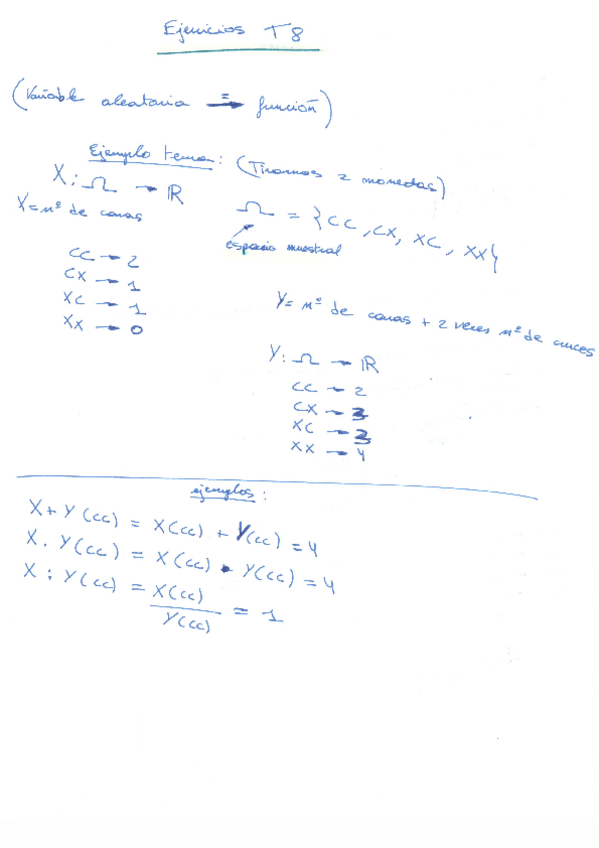 Ejercicios T8
(Variable aleatoria = → función)
Ejemplo tema: (Tiramos 2 monedas)
X: Ω → ℝ
X = nº de caras
Ω = {CC, CX, XC, XX}
espacio muestral
CC → 2
CX → 1
XC → 1
XX → 0
Y = nº de caras + 2 veces nº de cruces
Y: Ω → ℝ
CC → 2
CX → 3
XC → 3
XX → 4
ejemplos:
X + Y (CC) = X(CC) + Y(CC) = 4
X · Y (CC) = X (CC) · Y(CC) = 4
X : Y (CC) = X(CC) / Y(CC) = 1